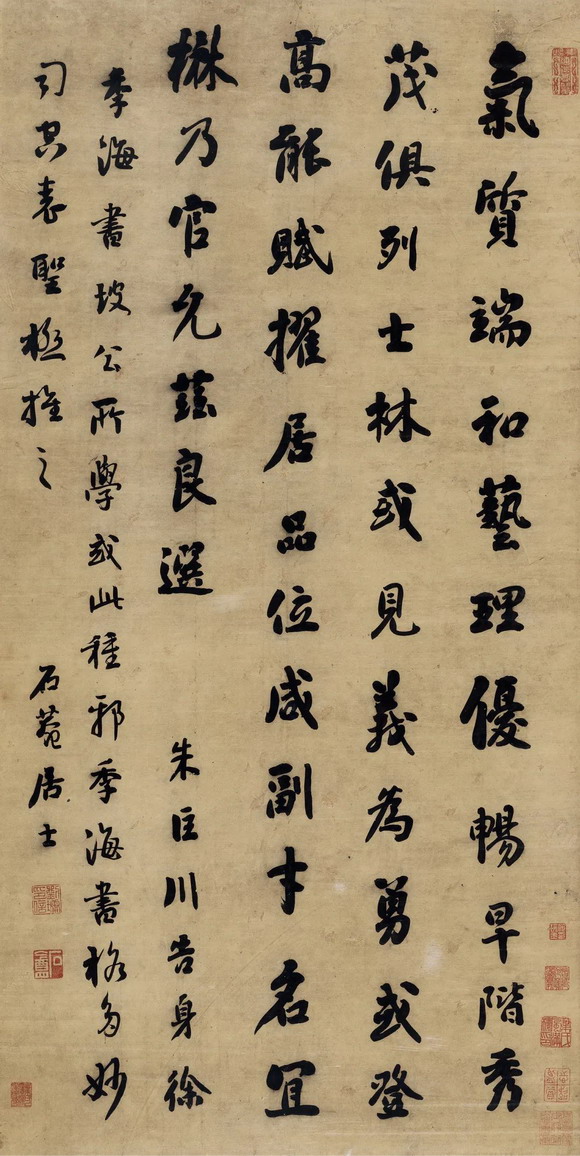 氣質端和藝理優暢早階秀
茂俱列士林或見義為勇或登
高能賦擢居品位咸副才名宜
楙乃官允茲良選 朱巨川告身徐
季海書坡公所學或此種邪季海書格多妙
司空表聖極推之 石菴居士